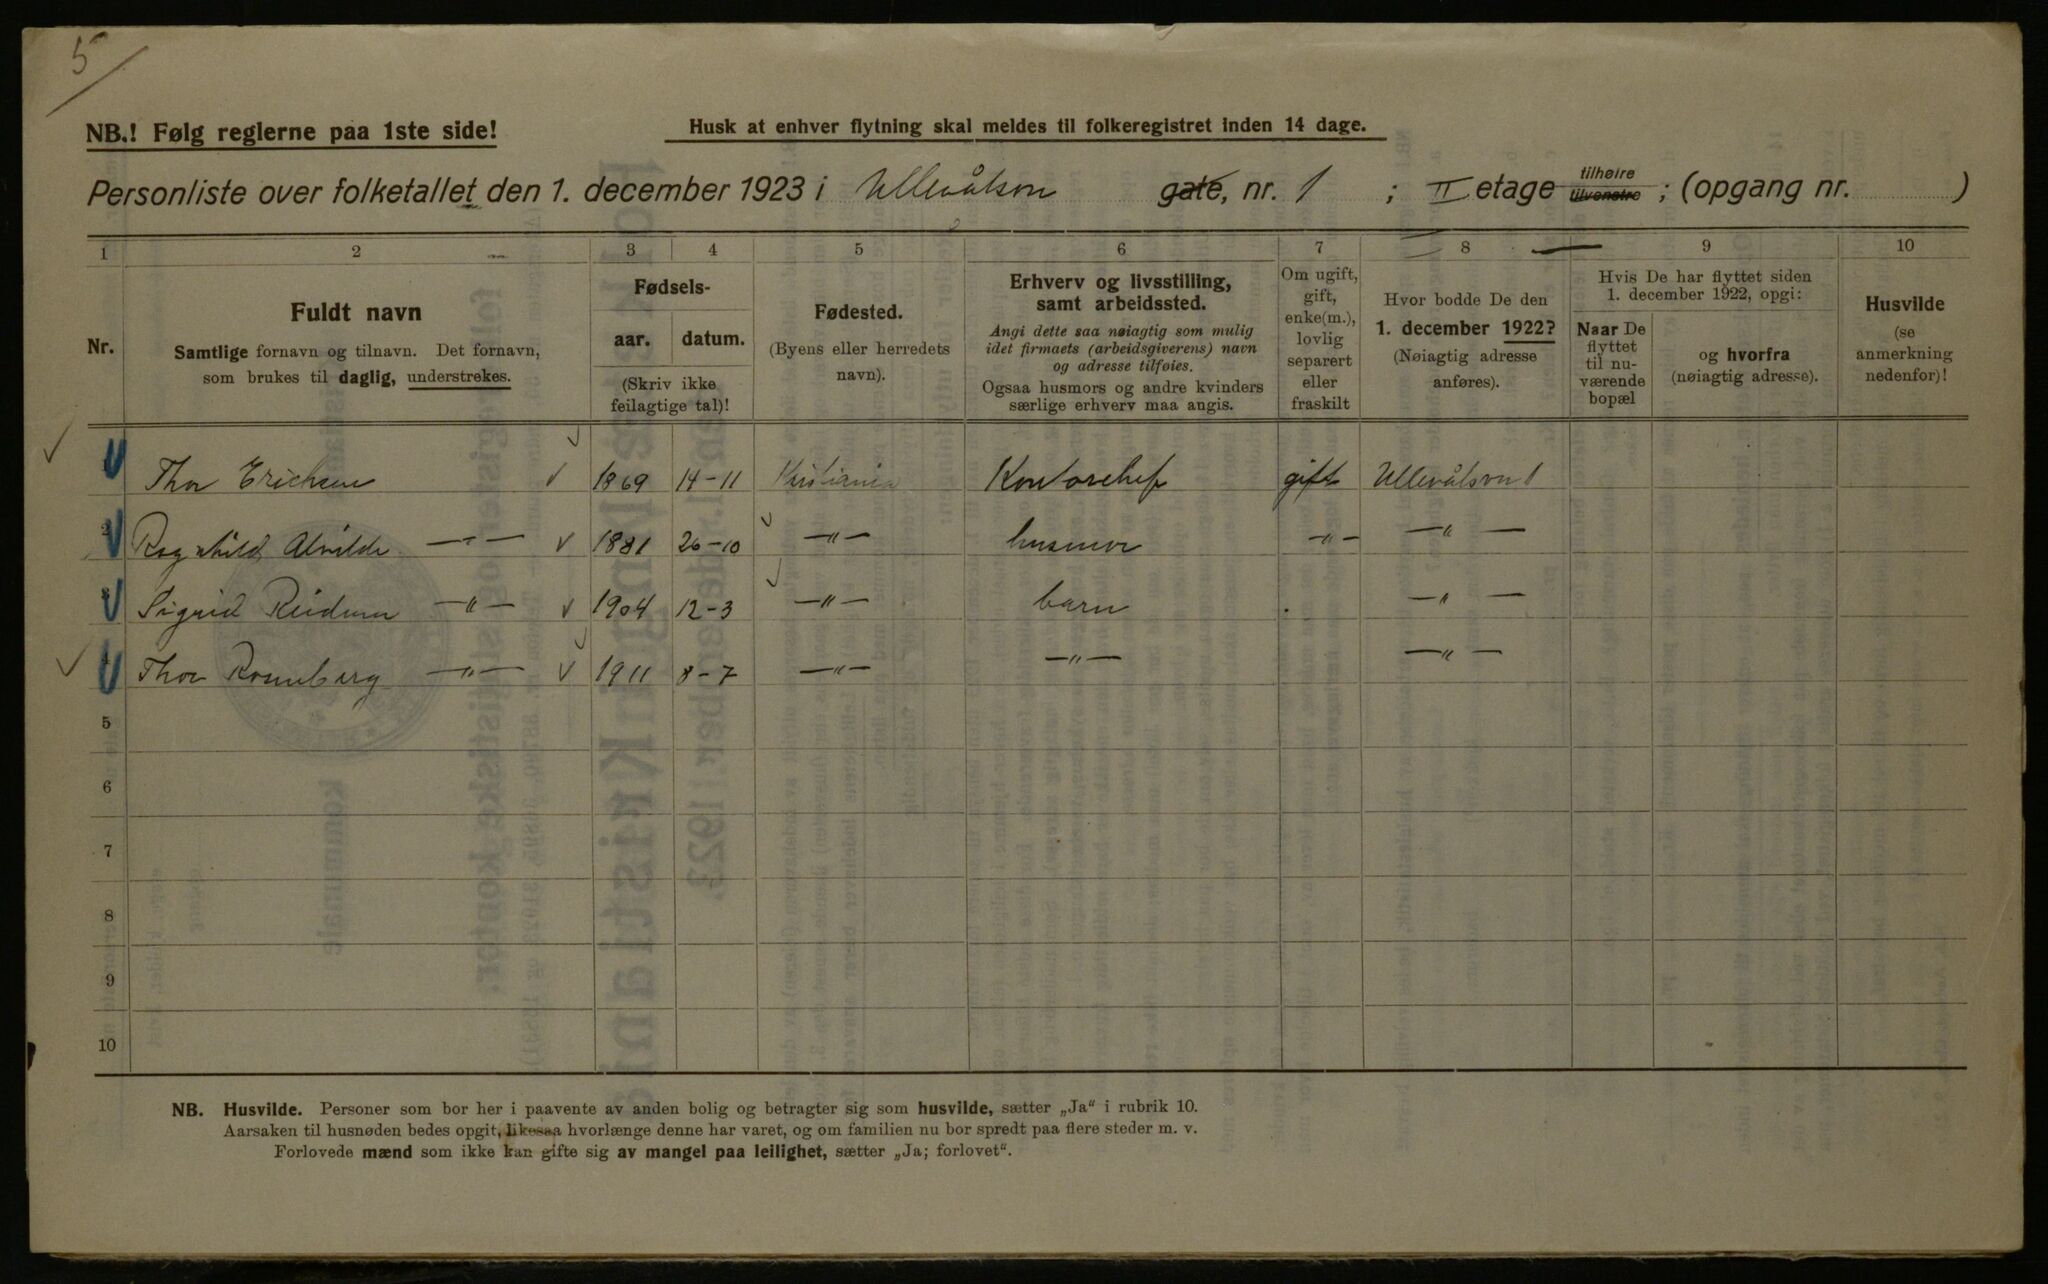 5
NB.! Følg reglerne paa 1ste side!
Husk at enhver flytning skal meldes til folkeregistret inden 14 dage.
Personliste over folketallet den 1. december 1923 i Ullevålsvn gate, nr. 1 ; II etage tilhøire tilvenstre ; (opgang nr. )
1 2 3 4 5 6 7 8 9 10
Nr.
Fuldt navn
Samtlige fornavn og tilnavn. Det fornavn,
som brukes til daglig, understrekes.
Fødsels-
aar. datum.
(Skriv ikke
feilagtige tal)!
Fødested.
(Byens eller herredets
navn).
Erhverv og livsstilling,
samt arbeidssted.
Angi dette saa nøiagtig som mulig
idet firmaets (arbeidsgiverens) navn
og adresse tilføies.
Ogsaa husmors og andre kvinders
særlige erhverv maa angis.
Om ugift,
gift,
enke(m.),
lovlig
separert
eller
fraskilt
Hvor bodde De den
1. december 1922?
(Nøiagtig adresse
anføres).
Hvis De har flyttet siden
1. december 1922, opgi:
Naar De
flyttet
til nu-
værende
bopæl
og hvorfra
(nøiagtig adresse).
Husvilde
(se
anmerkning
nedenfor)!
1 Thor Erichsen 1869 14-11 Kristiania Kontorchef gift Ullevålsvn 1
2 Ragnhild Alvilde —"— 1881 26-10 —"— husmor —"— —"—
3 Sigrid Reidunn —"— 1904 12-3 —"— barn —"—
4 Thor Rosenberg —"— 1911 8-7 —"— —"— —"—
5
6
7
8
9
10
NB. Husvilde. Personer som bor her i paavente av anden bolig og betragter sig som husvilde, sætter „Ja“ i rubrik 10.
Aarsaken til husnøden bedes opgit, likesaa hvorlænge denne har varet, og om familien nu bor spredt paa flere steder m. v.
Forlovede mænd som ikke kan gifte sig av mangel paa leilighet, sætter „Ja; forlovet“.